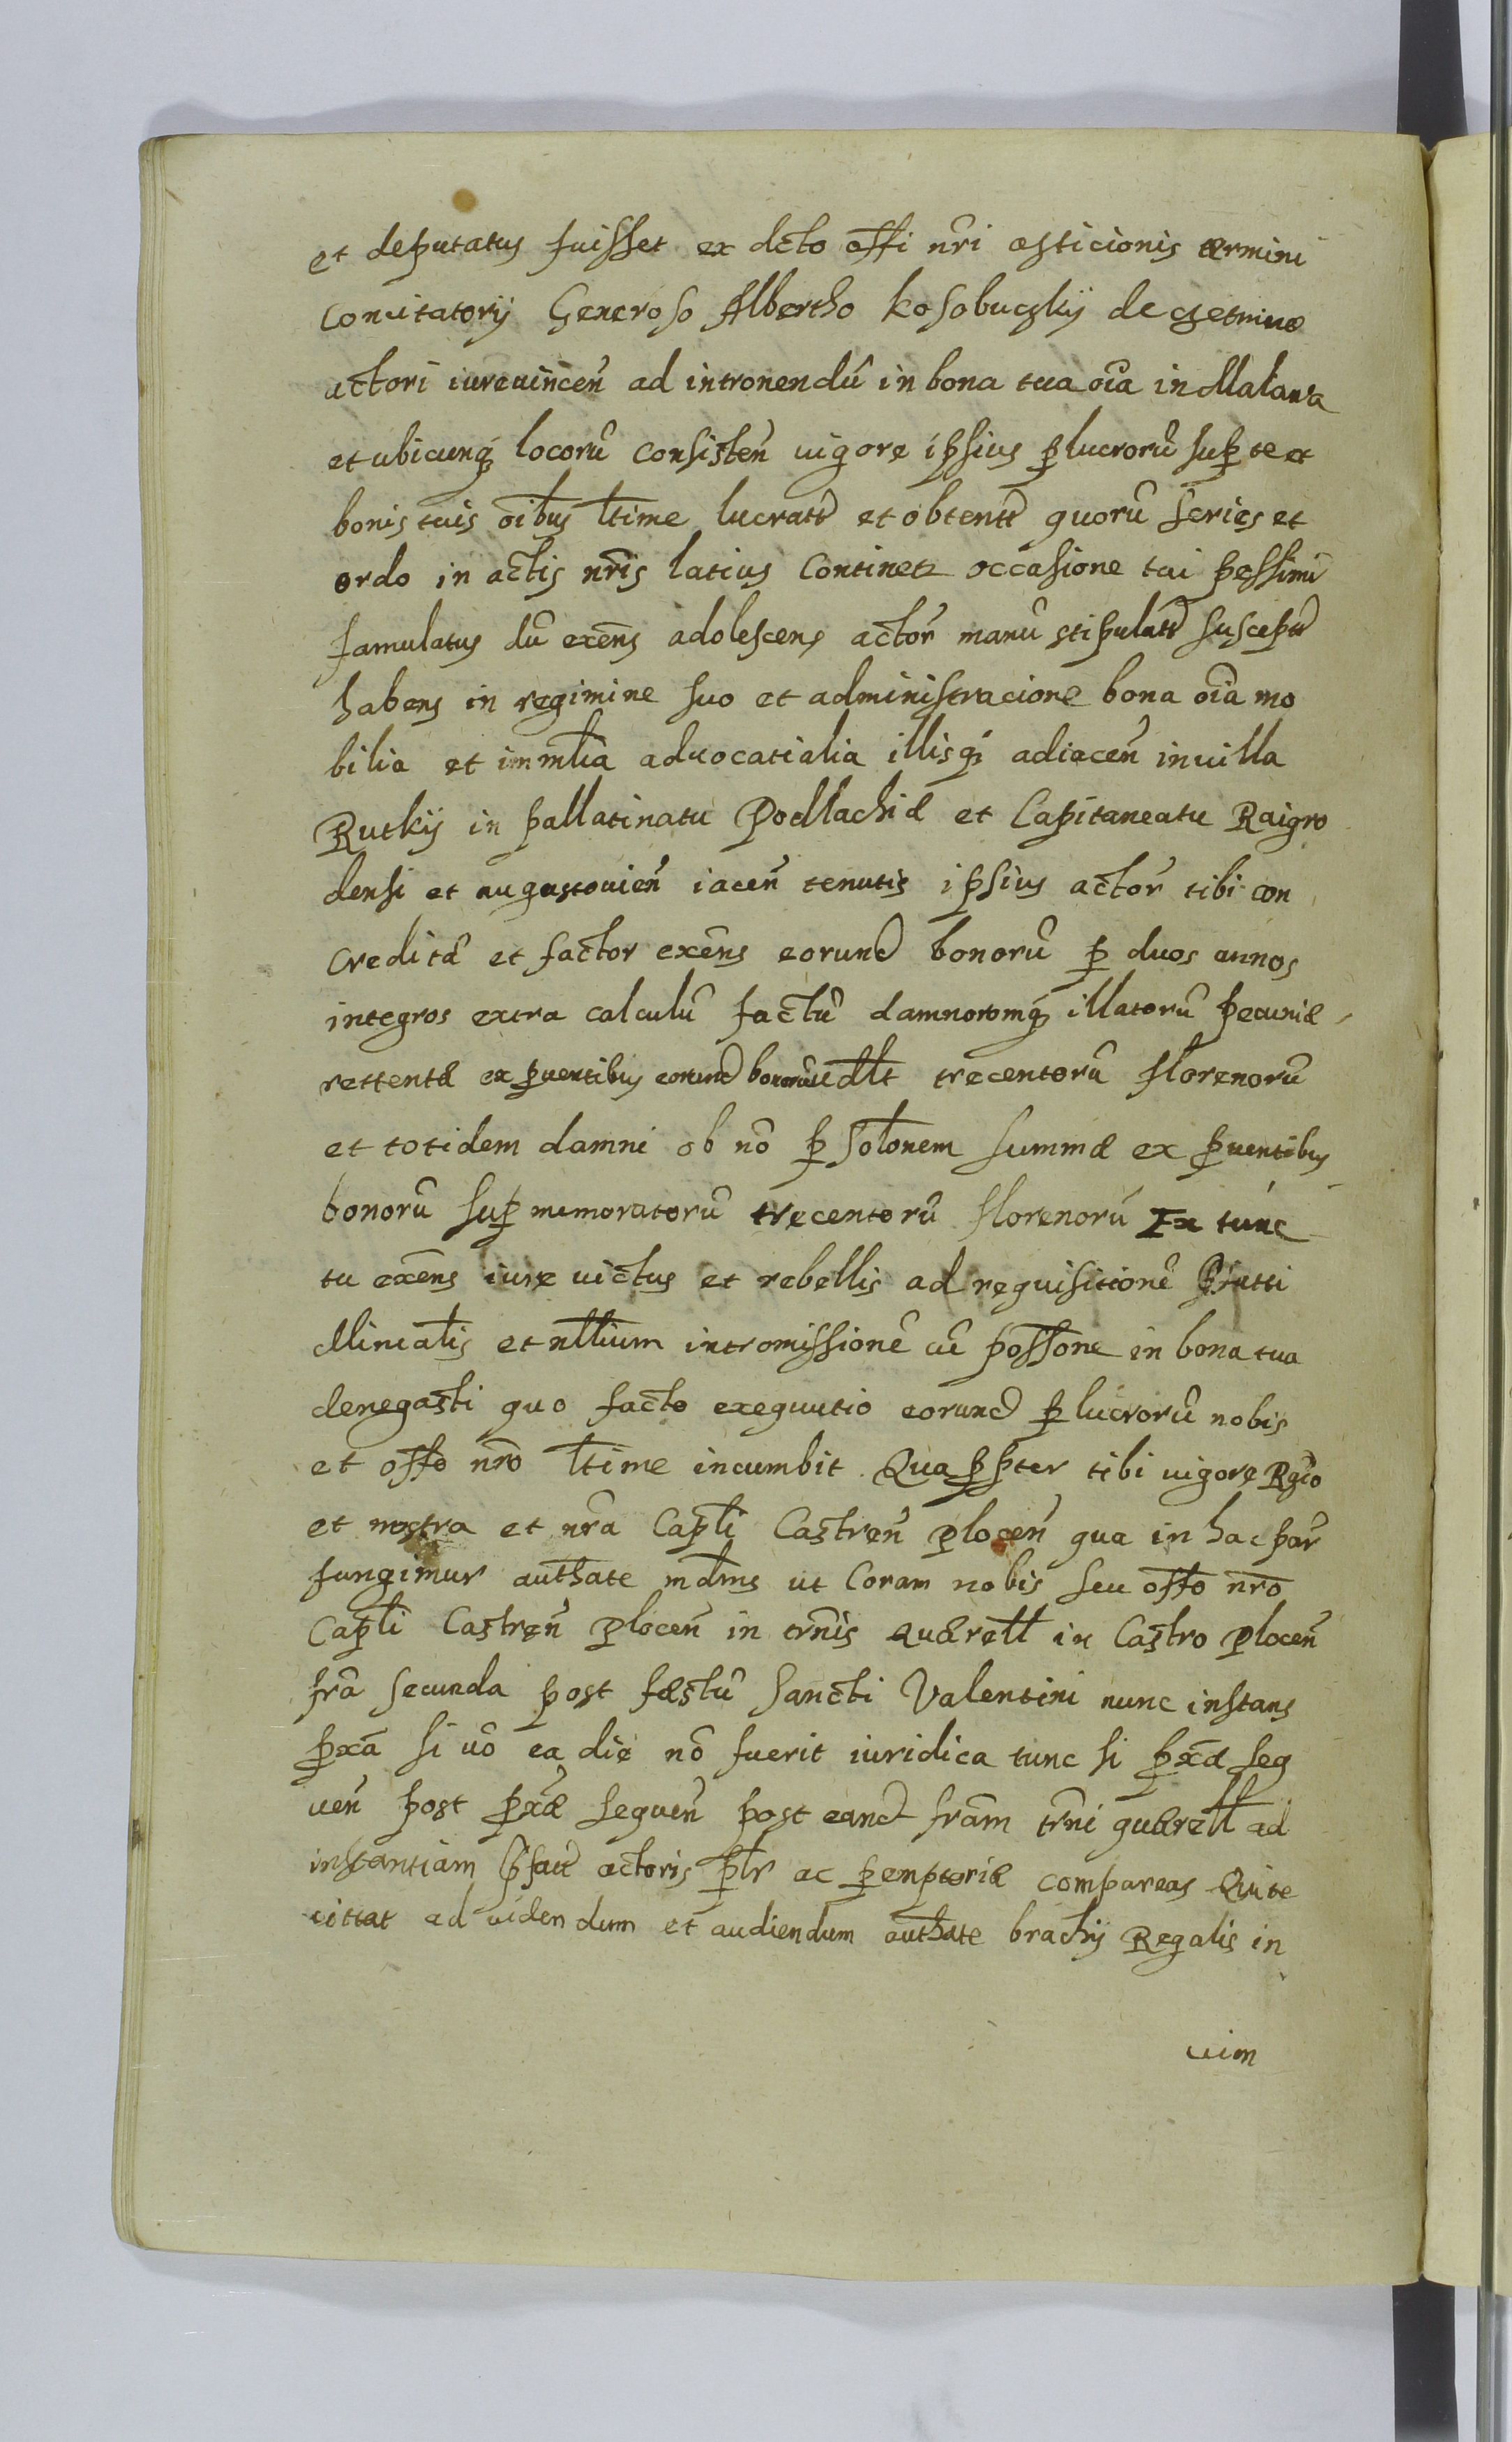 et deputatus fuisset ex dcto offi nri asticionis termini
Conuitatorij Generoso Albertho Kosobuczkij de czetnino
actori iureuincen ad intronendu in bona tua oia in Malawa
et ubicunq locoru consisten uigore ipsius plucroru sup te et
bonis tuis oibus ltime lucratt et obtentt quoru series et
ordo in actis nris latius continetr occasione tui pessimi
famulatus du exens adolescens actor manu stipulatt susceptt
habens in regimine suo et administracione bona oia mo
bilia et immlia aduocatialia illisq adiacen in uilla
Rutkij in pallatinatu Podllachiæ et Capitaneatu Raigro
densi et augustouien iacen tenutis ipsius actor tibi con
creditæ et factor exens eorund bonoru p duos annos
integros extra calculu factu damnoromq illatoru pecuniæ
rettentæ ex puentibus eorund bonoru udlt trecentoru florenoru
et totidem damni ob no p solonem summæ ex puentibus
bonoru sup memoratoru trecentoru florenoru Ex tunc
tu exens iure uictus et rebellis ad requisitione pfatti
Minialis et nllium intromissione ue possone in bona tua
denegasti quo facto exequutio eorund p lucroru nobis
et offo nro ltime incumbit Qua ppter tibi uigore Rgio
et nostra et nra Capli Castren plocen qua in hac par
fungimur authate mdms ut Coram nobis seu offo nro
Capli Castren plocen in trnis quærell in Castro plocen
fra secunda post fæstu Sancti Valentini nunc instans
pxa si uo ea die no fuerit iuridica tunc si pxæ seq
uen post pxæ sequen post eand fram trni quærell ad
instantiam pfatt actoris plr ac pemptoriæ compareas Qui te
cittat ad uidendum et audiendum authate brachij Regalis in
uim